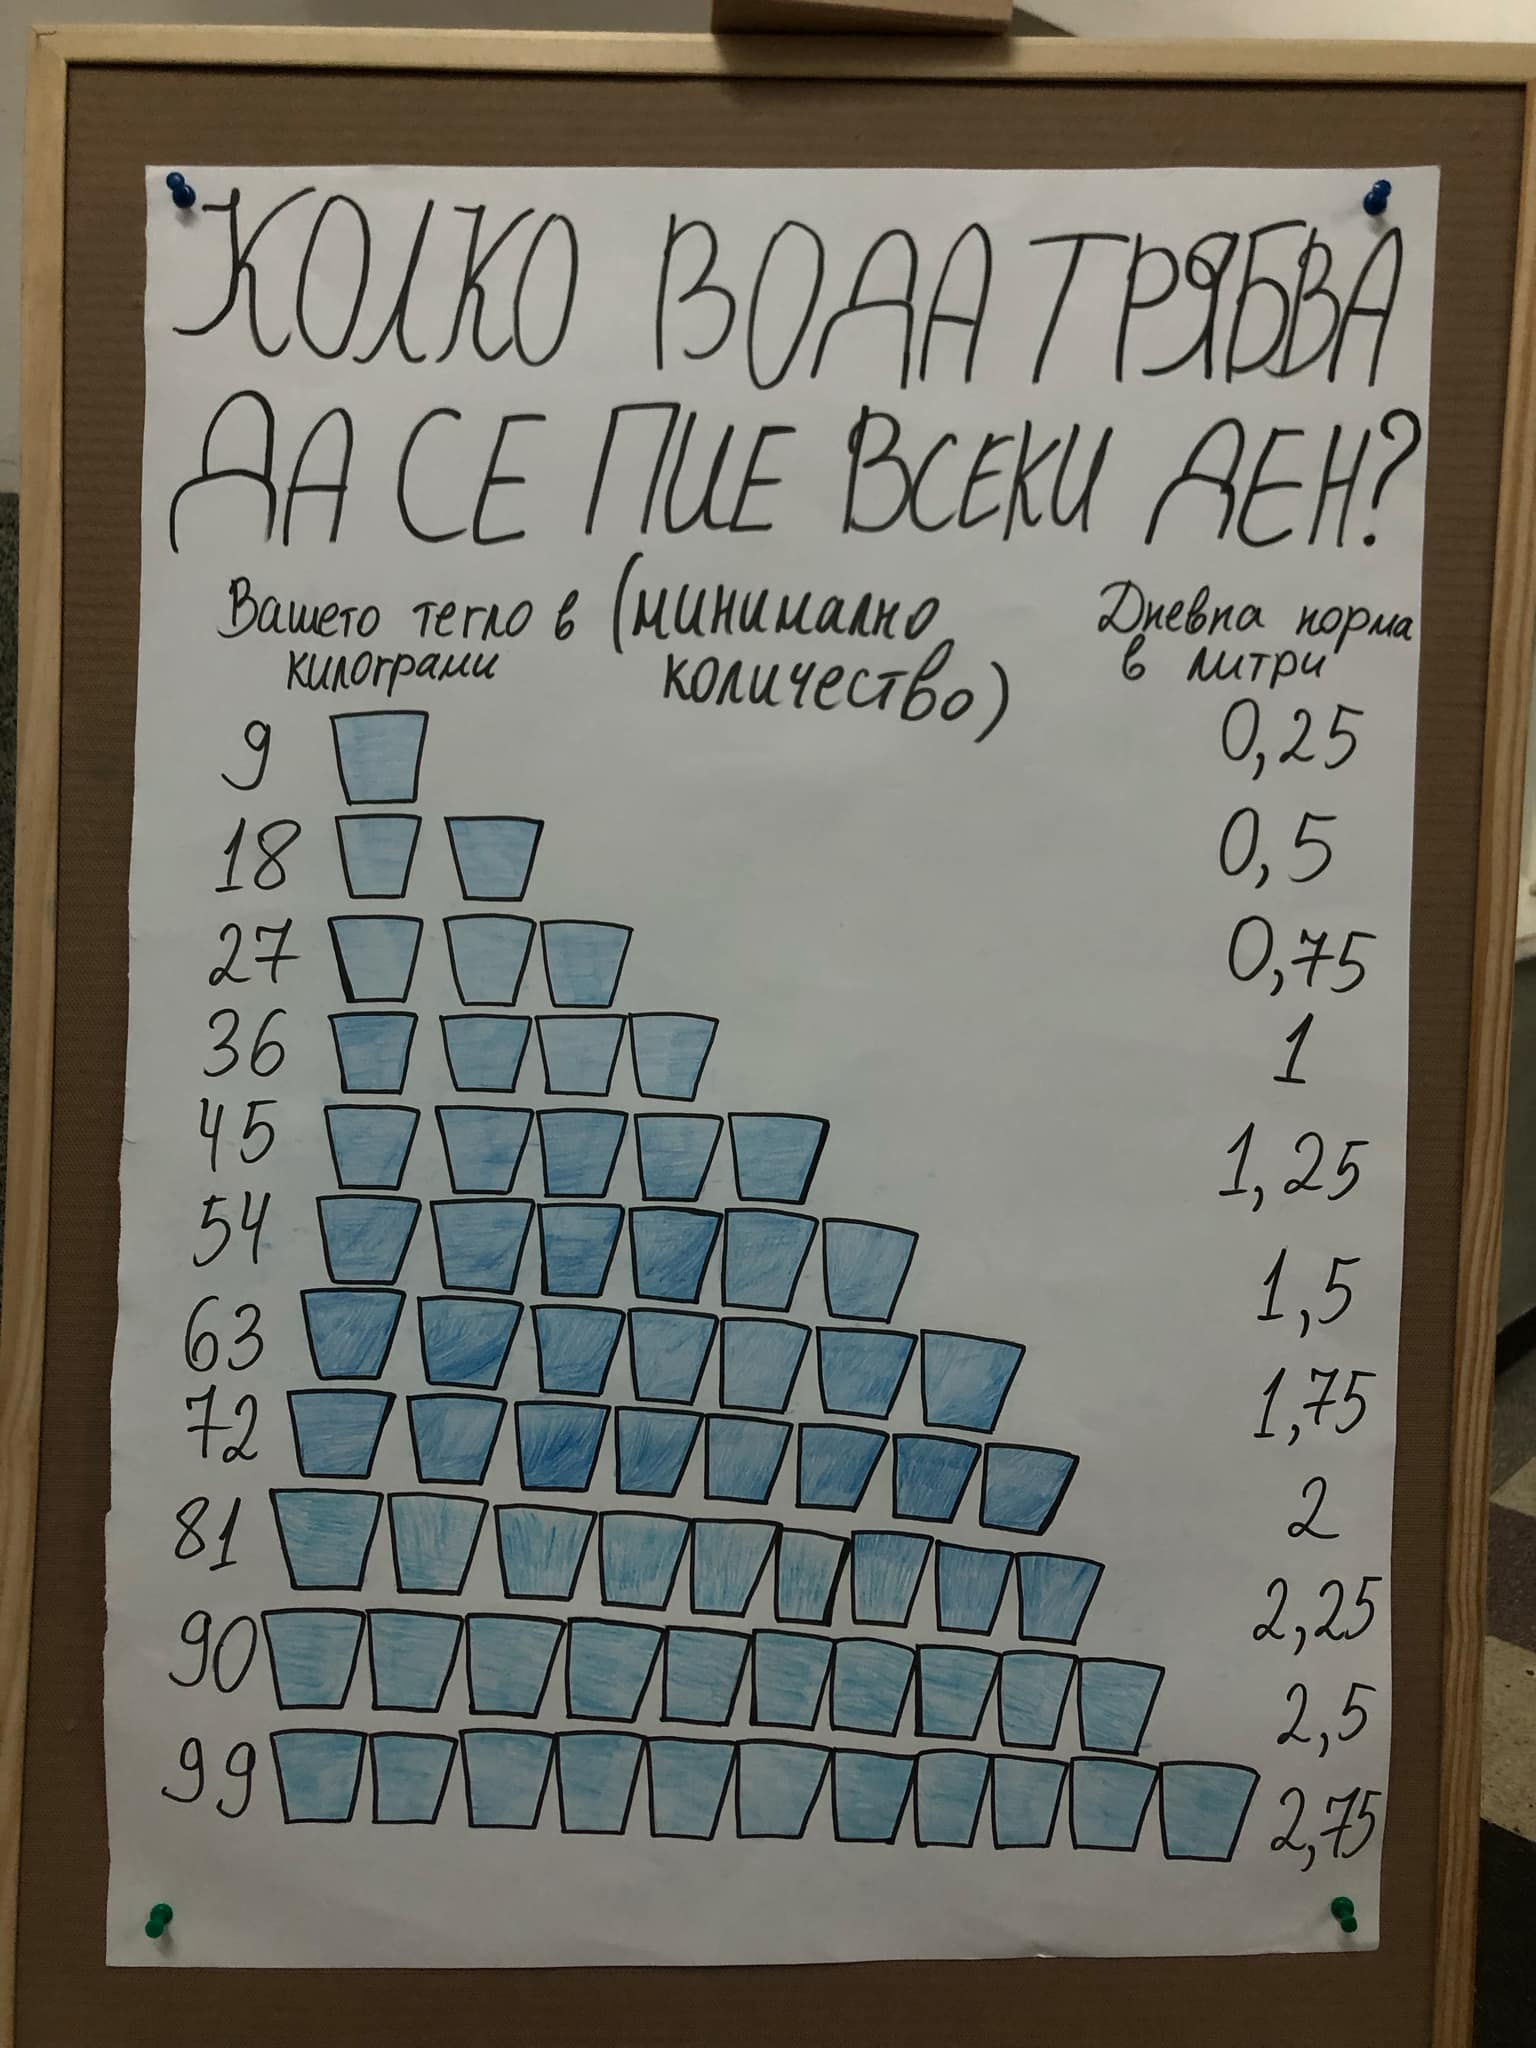 КОЛКО ВОДА ТРЯБВА
ДА СЕ ПИЕ ВСЕКИ ДЕН?
Вашето тегло в килограми
(минимално количество)
Дневна норма в литри
9 0,25
18 0,5
27 0,75
36 1
45 1,25
54 1,5
63 1,75
72 2
81 2,25
90 2,5
99 2,75